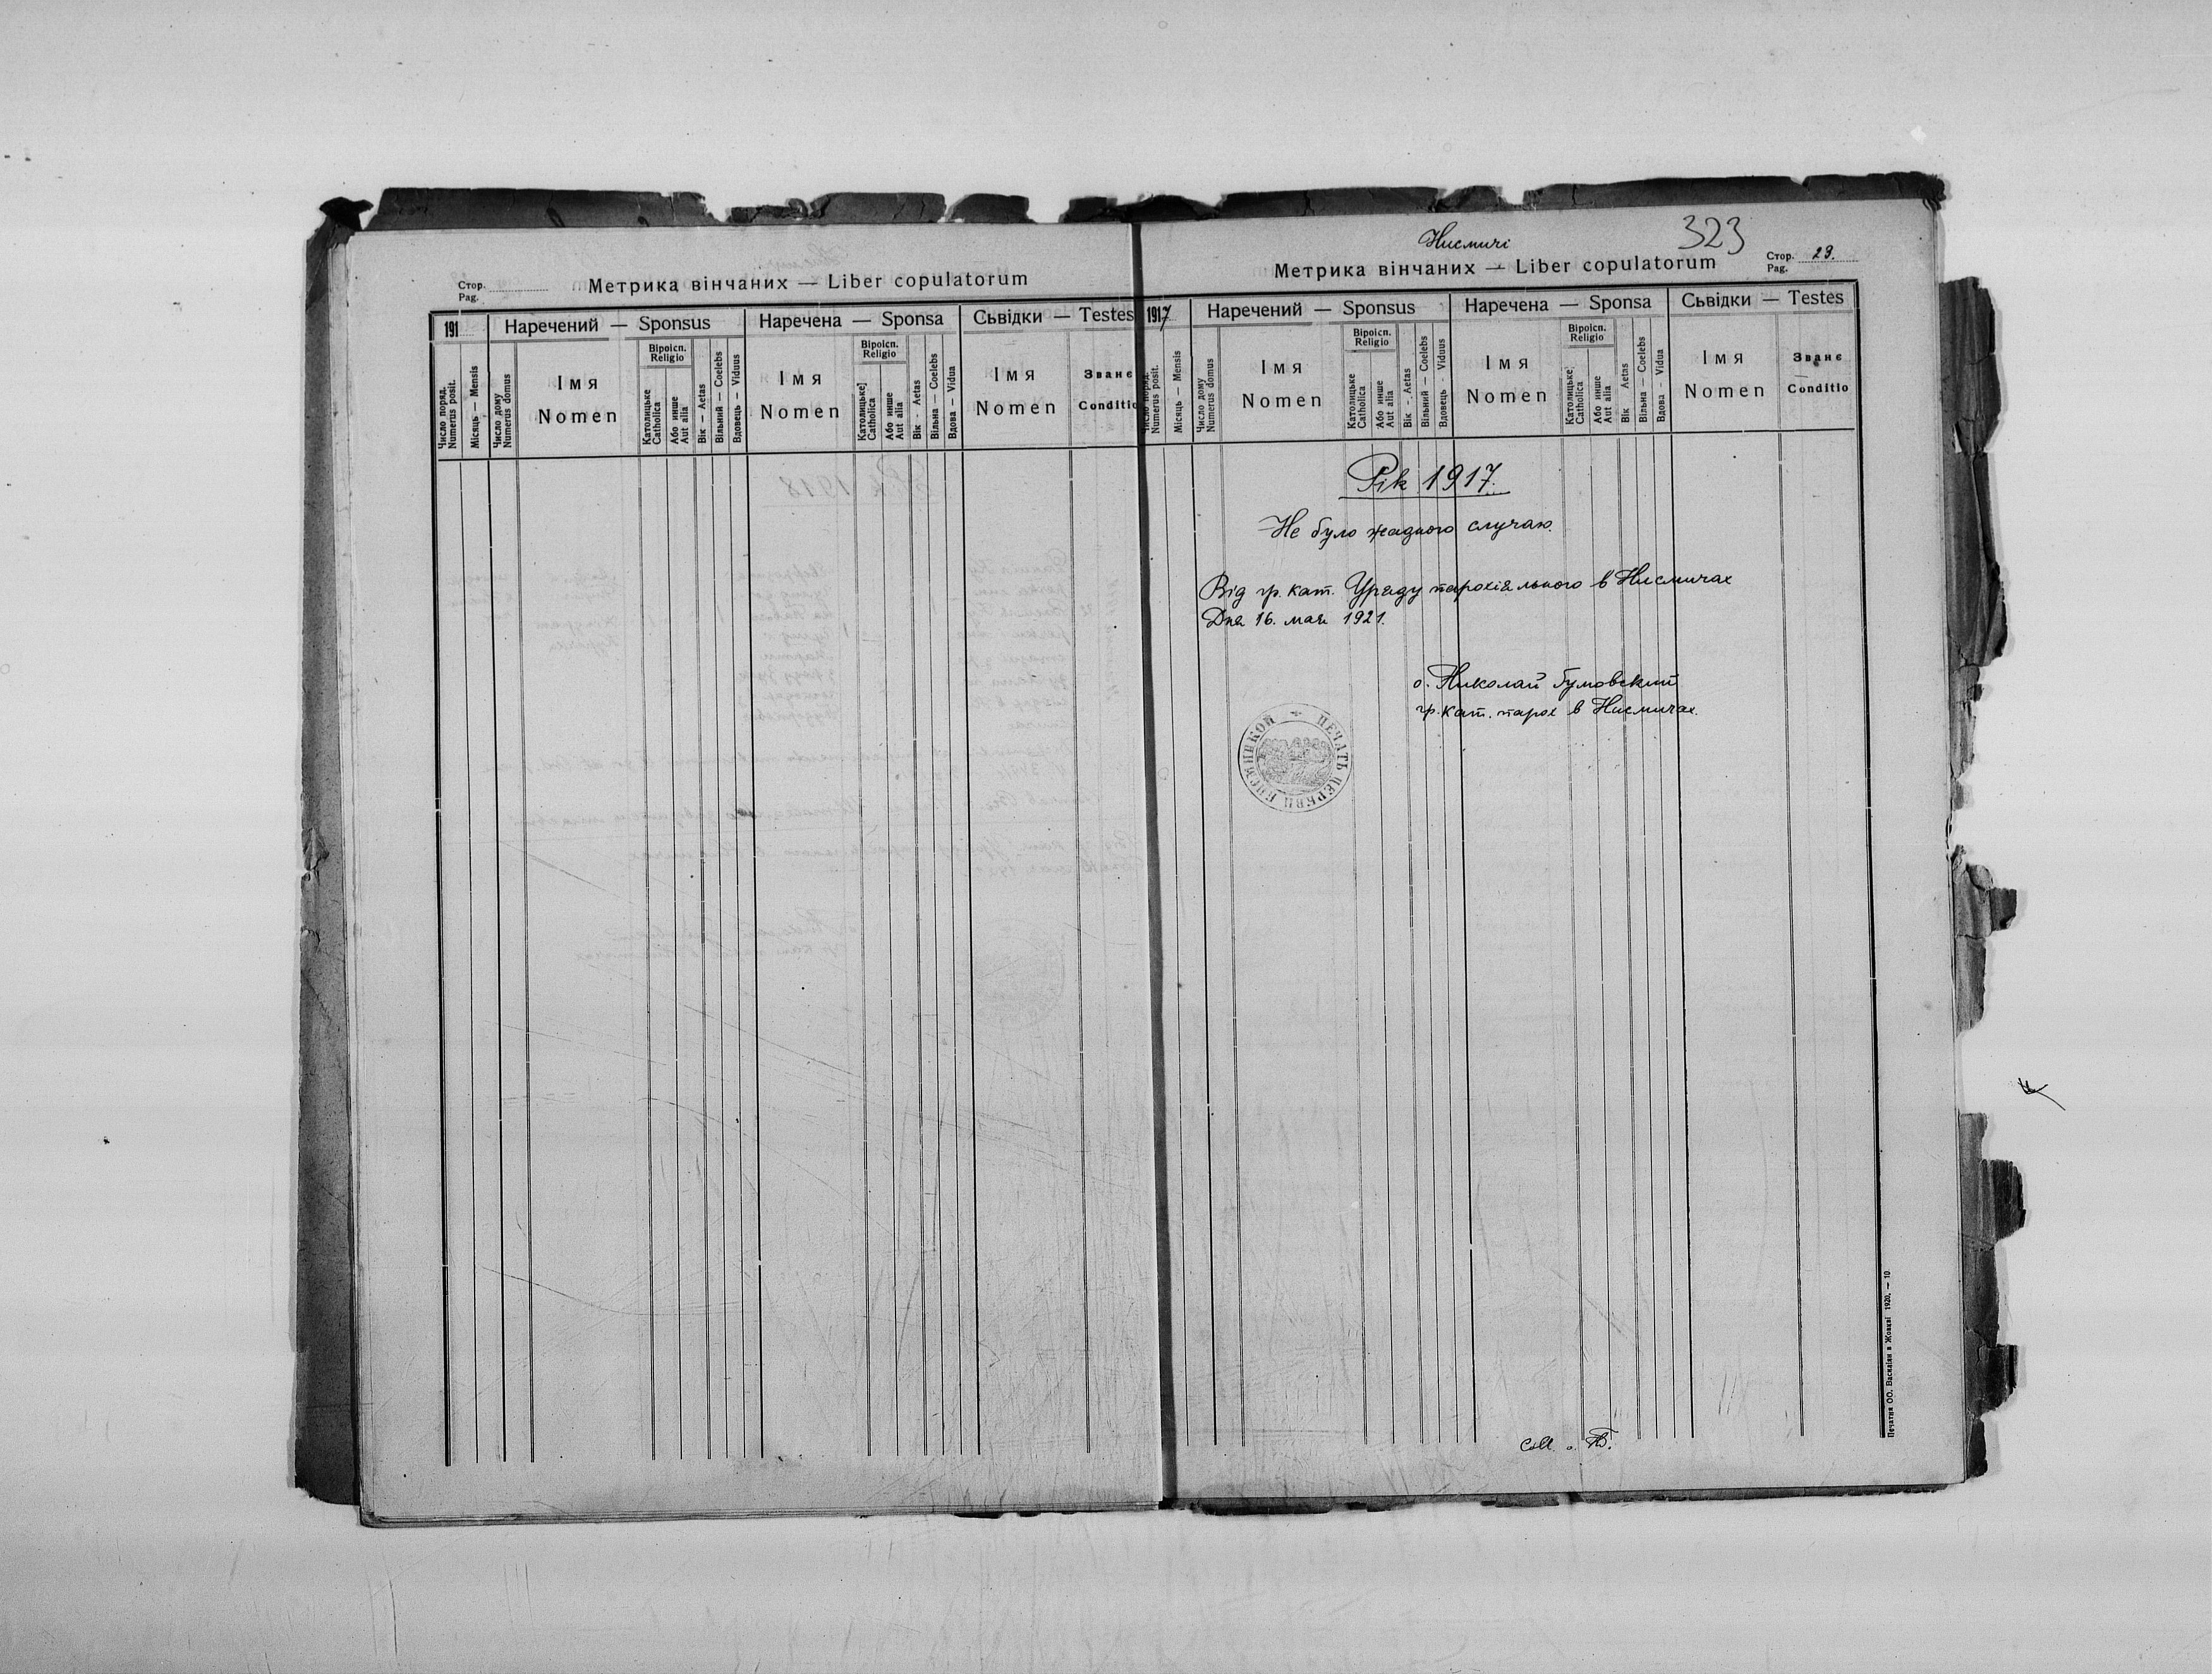 Стор.
Pag.
Метрика вінчаних — Liber copulatorum
191
Наречений — Sponsus
Наречена — Sponsa
Сьвідки — Testes
Число поряд.
Numerus posit.
Місяць — Mensis
Число дому
Numerus domus
Імя
Nomen
Віроісп.
Religio
Католицьке
Catholica
Або инше
Aut alia
Вік - Aetas
Вільний — Coelebs
Вдовець - Viduus
Імя
Nomen
Віроісп.
Religio
Католицьке
Catholica
Або инше
Aut alia
Вік - Aetas
Вільна — Coelebs
Вдова — Vidua
Імя
Nomen
Званє
Conditio
Нисмичі
323
Стор. 23.
Pag.
Метрика вінчаних — Liber copulatorum
1917
Наречений — Sponsus
Наречена — Sponsa
Сьвідки — Testes
Число поряд.
Numerus posit.
Місяць — Mensis
Число дому
Numerus domus
Імя
Nomen
Віроісп.
Religio
Католицьке
Catholica
Або инше
Aut alia
Вік - Aetas
Вільний — Coelebs
Вдовець - Viduus
Імя
Nomen
Віроісп.
Religio
Католицьке
Catholica
Або инше
Aut alia
Вік - Aetas
Вільна — Coelebs
Вдова - Vidua
Імя
Nomen
Званє
Conditio
Рік 1917.
Не було жадного случаю.
Від гр. кат. Уряду парохіяльного в Нисмичах
Дня 16. мая 1921.
о. Николай
гр. кат. парох в Нисмичах.
ПЕЧАТЬ ЦЕРКВИ
Coll. о.
Печатня ОО. Василіян в Жовкві 1920. — 10